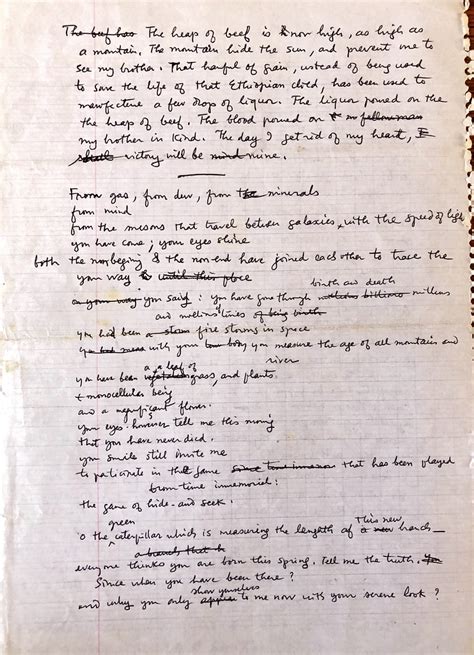 The beef has The heap of beef is now high, as high as
a mountain. The mountain hide the sun, and prevent me to
see my brother. That handful of grain, instead of being used
to save the life of that Ethiopian child, has been used to
manufacture a few drops of liquor. The liquor poured on the
the heap of beef. The blood poured on my fellowman
my brother in kind. The day I get rid of my heart, I
shall victory will be mind mine.
From gas, from dew, from the minerals
from mind
from the mesons that travel between galaxies with the speed of light
you have come, your eyes shine
both the nonbeging & the non end have joined each other to trace the
your way to until this place
birth and death
on your way you said: you have gone through millions billions millions
and millions lives of being birth
you had been a storm fire storms in space
you had meas with your body you measure the age of all mountain and
river
a leaf of
you have been vegetables grass, and plants.
& monocellular being
and a magnificent flower.
your eyes however tell me this morning
that you have never died.
your smile still invite me
to participate in the game since time immemo that has been played
from time immemorial:
the game of hide-and seek.
green This new
O the caterpillar which is measuring the length of a new branch
a branch that b
everyone thinks you are born this spring. tell me the truth. You
Since when you have been there?
show yourselves
and why you only appear to me now with your serene look?